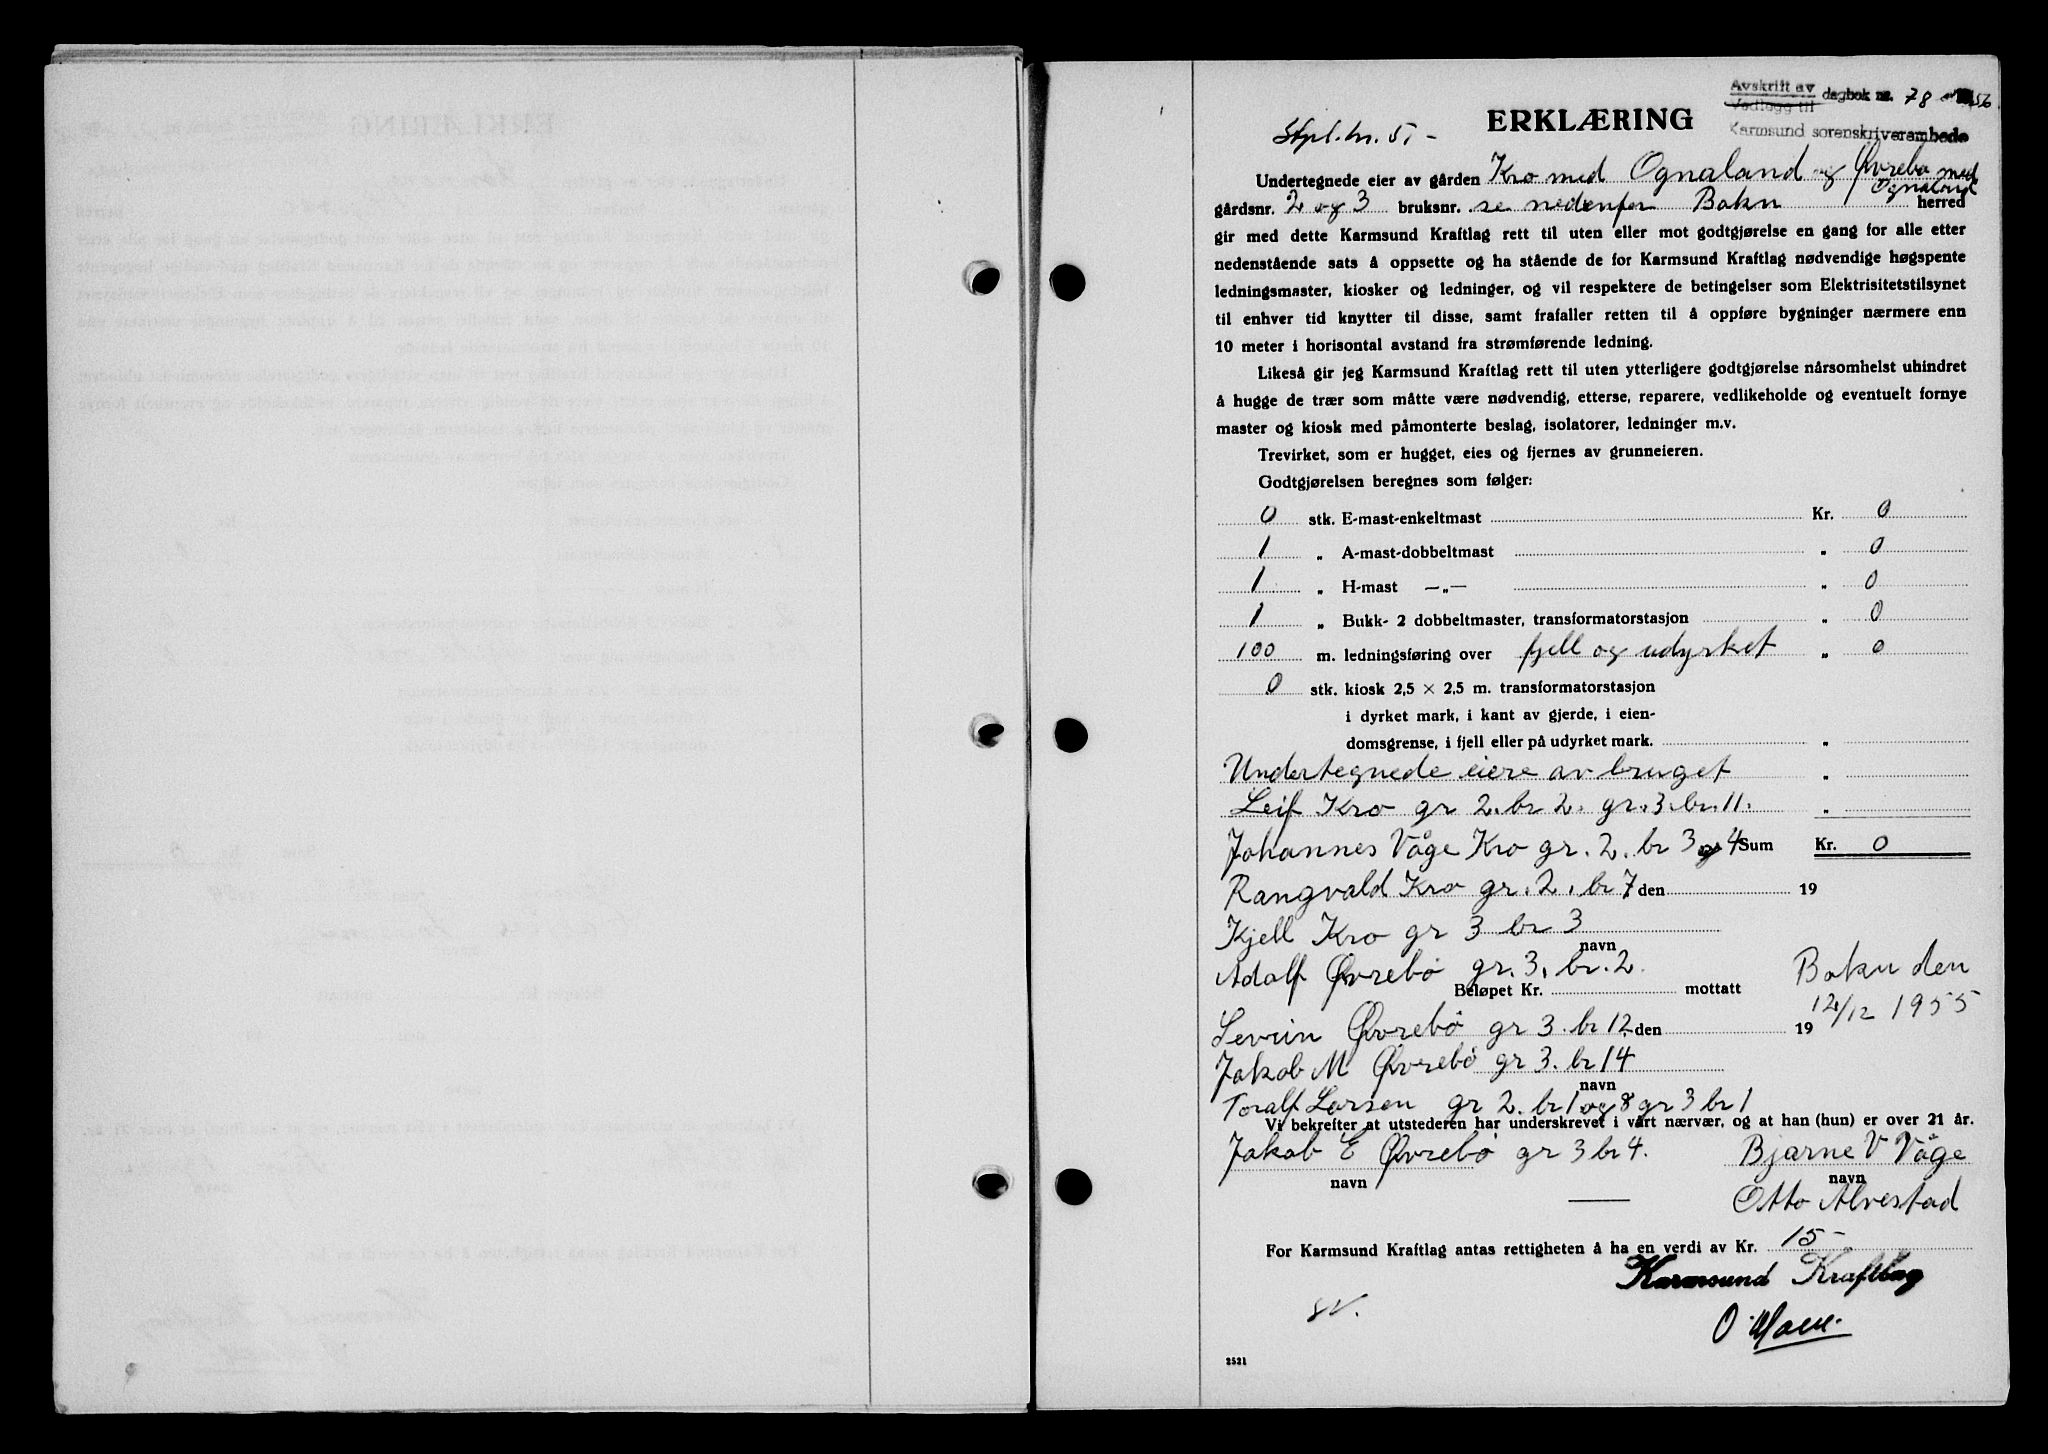 Avskrift av
Vedlegg til
dagbok nr. 78 56
Karmsund sorenskriverembede
Stpl. kr. 5,-
ERKLÆRING
Undertegnede eier av gården Kro med Ognaland og Øvrebø med Ognaland
gårdsnr. 2 og 3 bruksnr. se nedenfor Bokn herred
gir med dette Karmsund Kraftlag rett til uten eller mot godtgjørelse en gang for alle etter
nedenstående sats å oppsette og ha stående de for Karmsund Kraftlag nødvendige høgspente
ledningsmaster, kiosker og ledninger, og vil respektere de betingelser som Elektrisitetstilsynet
til enhver tid knytter til disse, samt frafaller retten til å oppføre bygninger nærmere enn
10 meter i horisontal avstand fra strømførende ledning.
Likeså gir jeg Karmsund Kraftlag rett til uten ytterligere godtgjørelse nårsomhelst uhindret
å hugge de trær som måtte være nødvendig, etterse, reparere, vedlikeholde og eventuelt fornye
master og kiosk med påmonterte beslag, isolatorer, ledninger m.v.
Trevirket, som er hugget, eies og fjernes av grunneieren.
Godtgjørelsen beregnes som følger:
0 stk. E-mast-enkeltmast Kr. 0
1 „ A-mast-dobbeltmast „ 0
1 „ H-mast —„— „ 0
1 „ Bukk- 2 dobbeltmaster, transformatorstasjon „ 0
100 m. ledningsføring over fjell og udyrket „ 0
0 stk. kiosk 2,5 × 2,5 m. transformatorstasjon
i dyrket mark, i kant av gjerde, i eien-
domsgrense, i fjell eller på udyrket mark. „
Undertegnede eiere av bruget „
Leif Kro gr 2. br 2. gr. 3. br. 11. „
Johannes Våge Kro gr. 2. br 3 og 4 Sum Kr. 0
Rangvald Kro gr. 2. br 7 den 19
Kjell Kro gr 3 br 3
navn
Adolf Øvrebø gr. 3. br. 2. Bokn den
Beløpet Kr. mottatt
12/12 1955
Sevrin Øvrebø gr 3. br 12. den 19
Jakob M Øvrebø gr 3. br 14
navn
Toralf Larsen gr 2. br 1 og 8 gr 3 br 1
Vi bekrefter at utstederen har underskrevet i vårt nærvær, og at han (hun) er over 21 år.
Jakob E Øvrebø gr 3 br 4. Bjarne V Våge
navn navn
Otto Alvestad
For Karmsund Kraftlag antas rettigheten å ha en verdi av Kr. 15-
Karmsund Kraftlag
2521